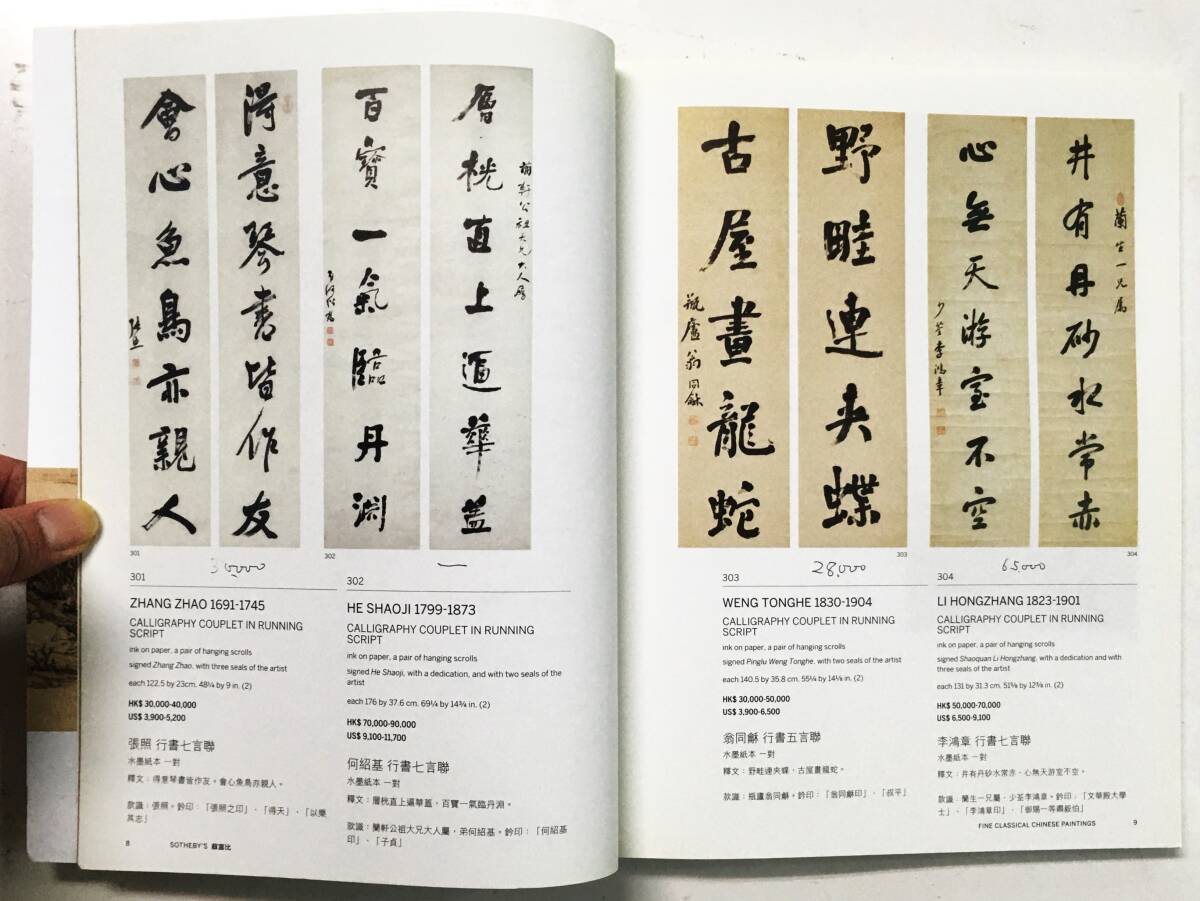 得意琴書皆作友
會心魚鳥亦親人
張照
層桄直上遁華蓋
百寶一氣臨丹淵
301
302
30,000
—
301
ZHANG ZHAO 1691-1745
CALLIGRAPHY COUPLET IN RUNNING
SCRIPT
ink on paper, a pair of hanging scrolls
signed Zhang Zhao, with three seals of the artist
each 122.5 by 23cm. 48¼ by 9 in. (2)
HK$ 30,000-40,000
US$ 3,900-5,200
張照 行書七言聯
水墨紙本 一對
釋文：得意琴書皆作友。會心魚鳥亦親人。
款識：張照。鈐印：「張照之印」、「得天」、「以樂
其志」
302
HE SHAOJI 1799-1873
CALLIGRAPHY COUPLET IN RUNNING
SCRIPT
ink on paper, a pair of hanging scrolls
signed He Shaoji, with a dedication, and with two seals of the
artist
each 176 by 37.6 cm. 69¼ by 14¾ in. (2)
HK$ 70,000-90,000
US$ 9,100-11,700
何紹基 行書七言聯
水墨紙本 一對
釋文：層桄直上遁華蓋，百寶一氣臨丹淵。
款識：蘭軒公祖大兄大人屬，弟何紹基。鈐印：「何紹基
印」、「子貞」
8
SOTHEBY'S 蘇富比
野畦連夾蝶
古屋畫龍蛇
瓶廬翁同龢
井有丹砂水常赤
心無天游室不空
蘭生一兄屬
少荃李鴻章
303
304
28,000
65,000
303
WENG TONGHE 1830-1904
CALLIGRAPHY COUPLET IN RUNNING
SCRIPT
ink on paper, a pair of hanging scrolls
signed Pinglu Weng Tonghe, with two seals of the artist
each 140.5 by 35.8 cm. 55¼ by 14⅛ in. (2)
HK$ 30,000-50,000
US$ 3,900-6,500
翁同龢 行書五言聯
水墨紙本 一對
釋文：野畦連夾蝶，古屋畫龍蛇。
款識：瓶廬翁同龢。鈐印：「翁同龢印」、「叔平」
304
LI HONGZHANG 1823-1901
CALLIGRAPHY COUPLET IN RUNNING
SCRIPT
ink on paper, a pair of hanging scrolls
signed Shaoquan Li Hongzhang, with a dedication and with
three seals of the artist
each 131 by 31.3 cm. 51⅝ by 12⅜ in. (2)
HK$ 50,000-70,000
US$ 6,500-9,100
李鴻章 行書七言聯
水墨紙本 一對
釋文：井有丹砂水常赤，心無天游室不空。
款識：蘭生一兄屬，少荃李鴻章。鈐印：「文華殿大學
士」、「李鴻章印」、「御賜一等肅毅伯」
FINE CLASSICAL CHINESE PAINTINGS
9